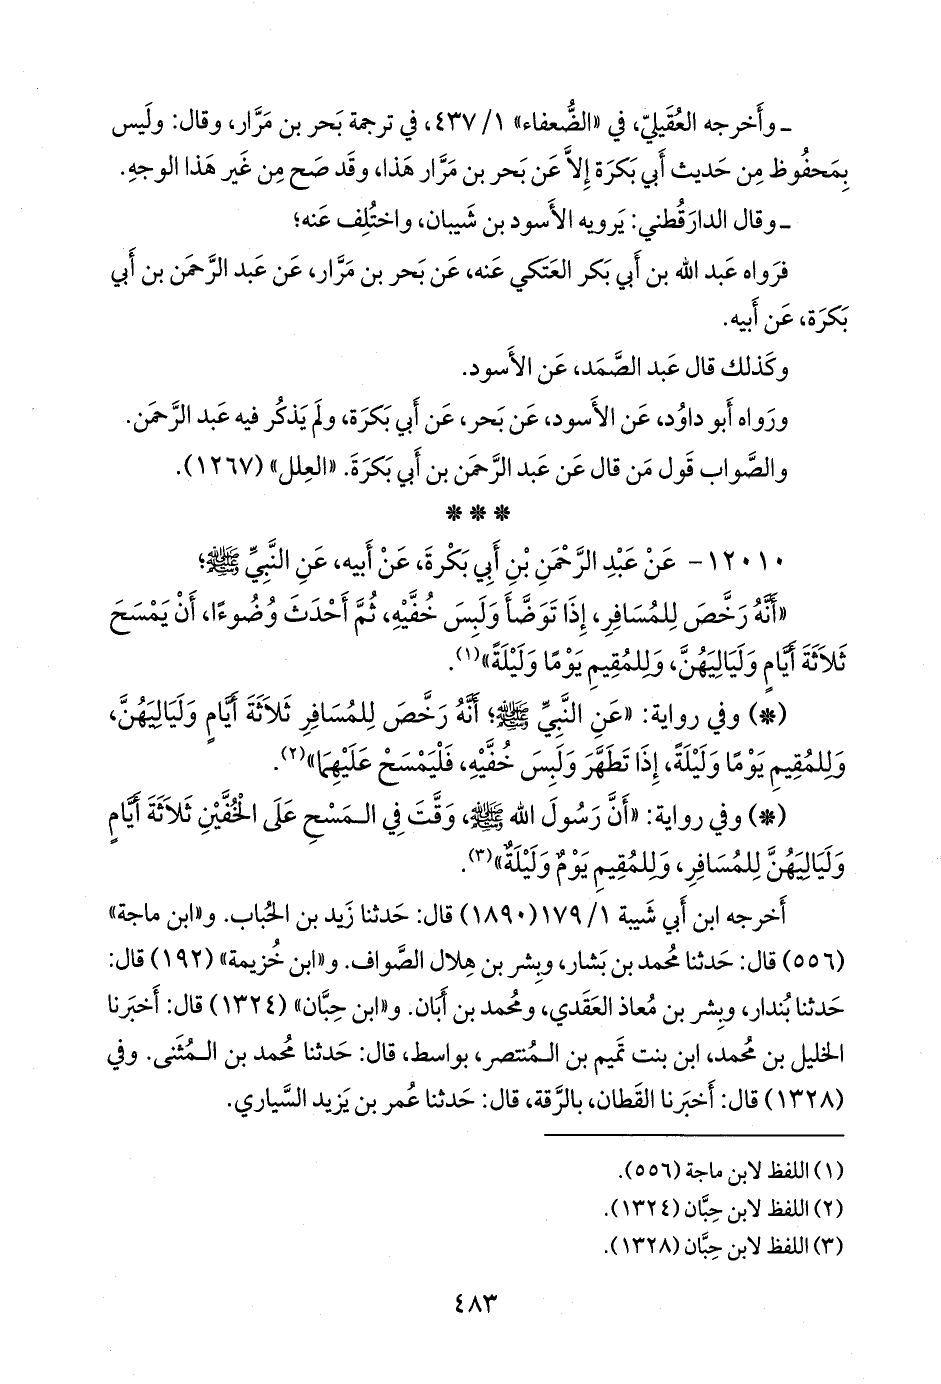 ـ وأَخرجه العُقَيليّ، في «الضُّعفاء» ١/ ٤٣٧، في ترجمة بَحر بن مَرَّار، وقال: وليَس
بِمَحفُوظ مِن حَديث أَبي بَكرَة إِلاَّ عَن بَحر بن مَرَّار هَذا، وقَد صَح مِن غَير هَذا الوجهِ.
ـ وقال الدارَقُطني: يَرويه الأَسود بن شَيبان، واختُلِف عَنه؛
فرَواه عَبد الله بن أَبي بَكر العَتَكي عَنه، عَن بَحر بن مَرَّار، عَن عَبد الرَّحمَن بن أَبي
بَكرَة، عَن أَبيه.
وكَذلك قال عَبد الصَّمَد، عَن الأَسود.
ورَواه أَبو داوُد، عَن الأَسود، عَن بَحر، عَن أَبي بَكرَة، ولَم يَذكُر فيه عَبد الرَّحمَن.
والصَّواب قَول مَن قال عَن عَبد الرَّحمَن بن أَبي بَكرَةَ. «العِلل» (١٢٦٧).
* * *
١٢٠١٠- عَنْ عَبْدِ الرَّحْمَنِ بْنِ أَبِي بَكْرَةَ، عَنْ أَبيه، عَنِ النَّبِيِّ ﷺ؛
«أَنَّهُ رَخَّصَ لِلمُسَافِرِ، إِذَا تَوَضَّأَ وَلَبِسَ خُفَّيْهِ، ثُمَّ أَحْدَثَ وُضُوءًا، أَنْ يَمْسَحَ
ثَلاَثَةَ أَيَّامٍ وَلَيَالِيَهُنَّ، وَلِلمُقِيمِ يَوْمًا وَلَيْلَةً»(١).
(*) وفي رواية: «عَنِ النَّبِيِّ ﷺ؛ أَنَّهُ رَخَّصَ لِلمُسَافِرِ ثَلاَثَةَ أَيَّامٍ وَلَيَالِيَهُنَّ،
وَلِلمُقِيمِ يَوْمًا وَلَيْلَةً، إِذَا تَطَهَّرَ وَلَبِسَ خُفَّيْهِ، فَلْيَمْسَحْ عَلَيْهِمَا»(٢).
(*) وفي رواية: «أَنَّ رَسُولَ الله ﷺ، وَقَّتَ فِي الـمَسْحِ عَلَى الْخُفَّيْنِ ثَلاَثَةَ أَيَّامٍ
وَلَيَالِيَهُنَّ لِلمُسَافِرِ، وَلِلمُقِيمِ يَوْمٌ وَلَيْلَةٌ»(٣).
أَخرجه ابن أَبي شَيبة ١/ ١٧٩(١٨٩٠) قال: حَدثنا زَيد بن الحُباب. و«ابن ماجة»
(٥٥٦) قال: حَدثنا مُحمد بن بَشار، وبِشر بن هِلال الصَّواف. و«ابن خُزيمة» (١٩٢) قال:
حَدثنا بُندار، وبِشر بن مُعاذ العَقَدي، ومُحمد بن أَبَان. و«ابن حِبَّان» (١٣٢٤) قال: أَخبَرنا
الخليل بن مُحمد، ابن بنت تَميم بن الـمُنتصر، بواسط، قال: حَدثنا مُحمد بن الـمُثَنى. وفي
(١٣٢٨) قال: أَخبَرنا القَطان، بالرَّقة، قال: حَدثنا عُمر بن يَزيد السَّياري.
(١) اللفظ لابن ماجة (٥٥٦).
(٢) اللفظ لابن حِبَّان (١٣٢٤).
(٣) اللفظ لابن حِبَّان (١٣٢٨).
٤٨٣